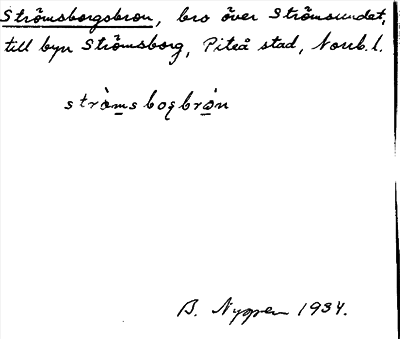 Strömsborgsbron, bro över Strömsundet,
till byn Strömsborg, Piteå stad, Norrb. l.
B. Nyppen 1934.